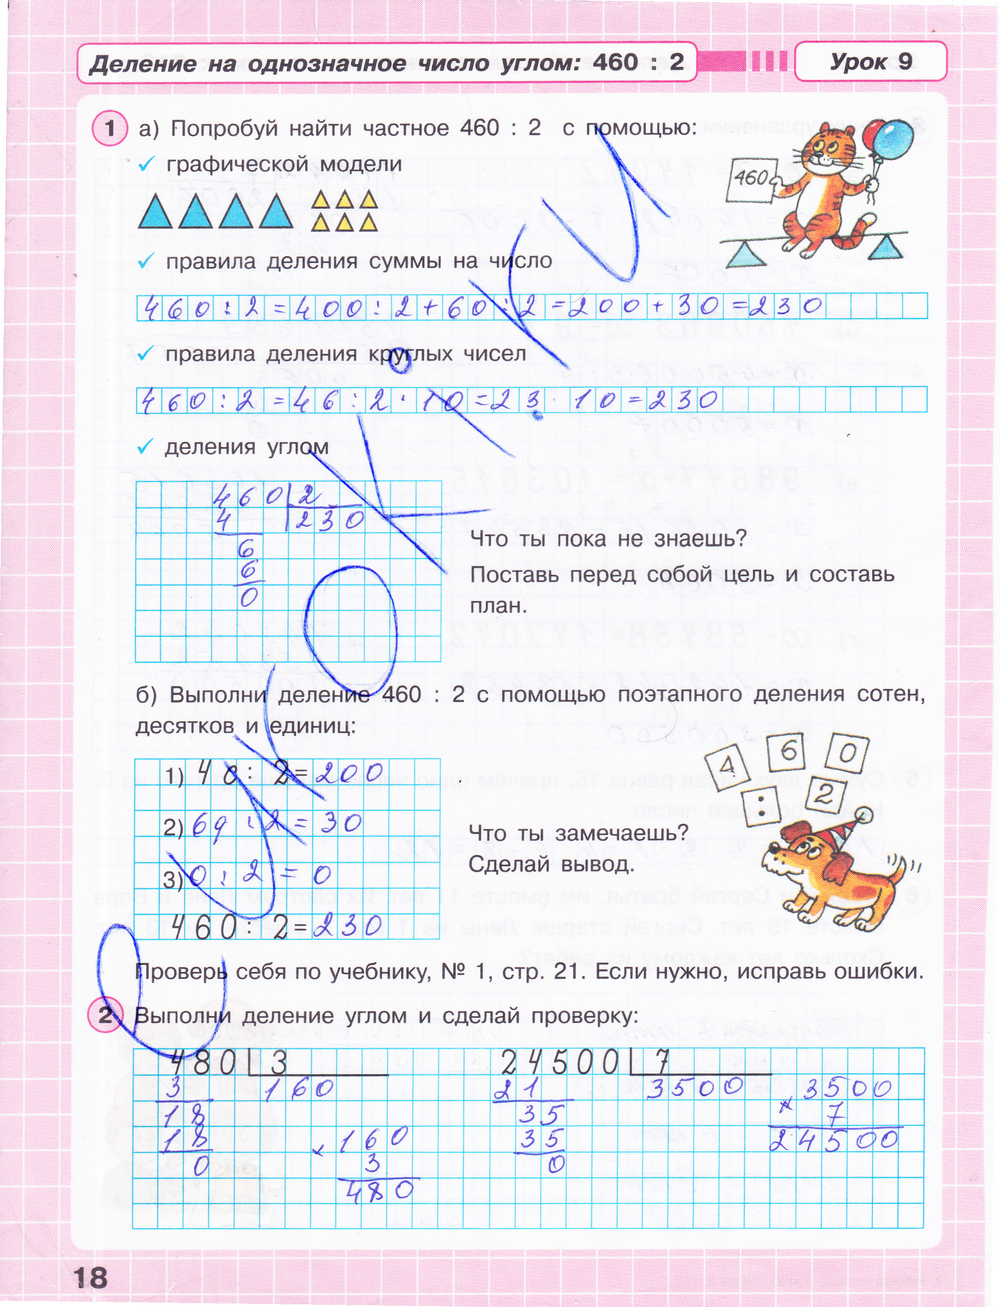 Деление на однозначное число углом: 460 : 2
Урок 9
1 а) Попробуй найти частное 460 : 2 с помощью:
✓ графической модели
460
✓ правила деления суммы на число
460:2=400:2+60:2=200+30=230
✓ правила деления круглых чисел
460:2=46:2·10=23·10=230
✓ деления углом
460 2
4 230
6
6
0
Что ты пока не знаешь?
Поставь перед собой цель и составь
план.
б) Выполни деление 460 : 2 с помощью поэтапного деления сотен,
десятков и единиц:
1) 40: 2=200
2) 60:2=30
3) 0:2=0
460: 2=230
4 6 0 : 2
Что ты замечаешь?
Сделай вывод.
Проверь себя по учебнику, № 1, стр. 21. Если нужно, исправь ошибки.
2 Выполни деление углом и сделай проверку:
480 3
3 160
18
18
0
× 160
3
480
24500 7
21 3500
35
35
0
× 3500
7
24500
18